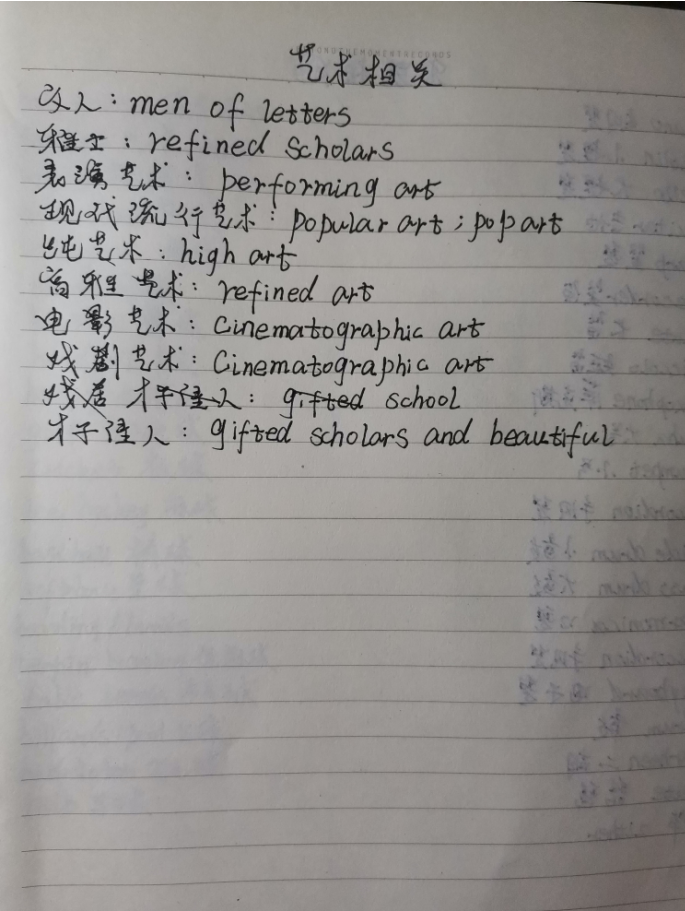 艺术相关
文人：men of letters
雅士：refined scholars
表演艺术：performing art
现代流行艺术：popular art；pop art
纯艺术：high art
高雅艺术：refined art
电影艺术：cinematographic art
戏剧艺术：Cinematographic art
才子佳人：gifted school
才子佳人：gifted scholars and beautiful